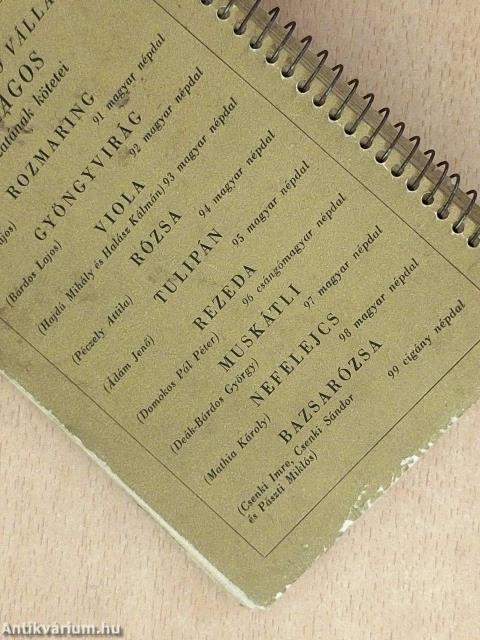 Ó VÁLLA
ÁGOS
kötetei
ROZMARING
91 magyar népdal
GYÖNGYVIRÁG
92 magyar népdal
(Bárdos Lajos)
VIOLA
93 magyar népdal
(Hajdú Mihály és Halász Kálmán)
RÓZSA
94 magyar népdal
(Péczely Attila)
TULIPÁN
95 magyar népdal
(Ádám Jenő)
REZEDA
96 csángómagyar népdal
(Domokos Pál Péter)
MUSKÁTLI
97 magyar népdal
(Deák-Bárdos György)
NEFELEJCS
98 magyar népdal
(Mathia Károly)
BAZSARÓZSA
99 cigány népdal
(Csenki Imre, Csenki Sándor
és Pászti Miklós)
Antikvárium.hu